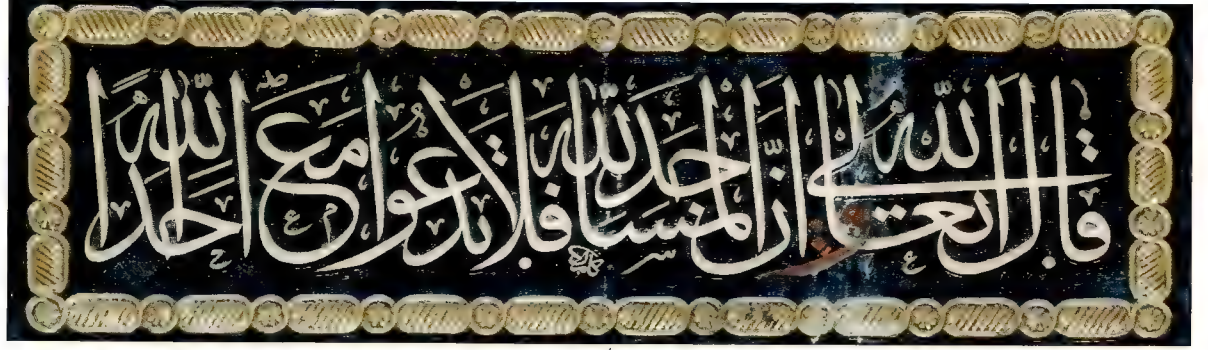 قال الله تعالى ان المساجد لله فلا تدعوا مع الله احدا